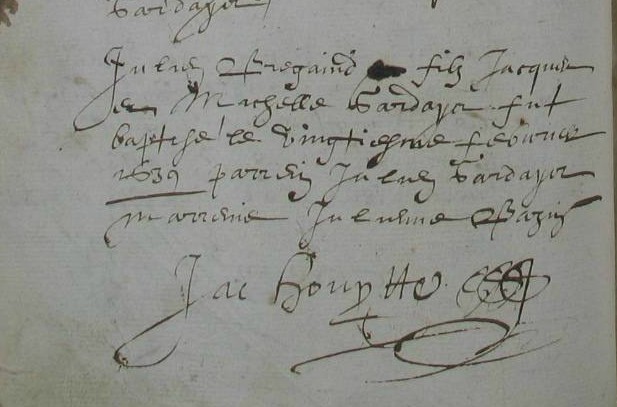 Sardayer
Julien Bregaind filz Jacques
et Michelle Sardayer fut
baptisé le vingtiesme febvrier
1639 parrein Julien Sardayer
marreine Julienne Bazin
Jac Houytte